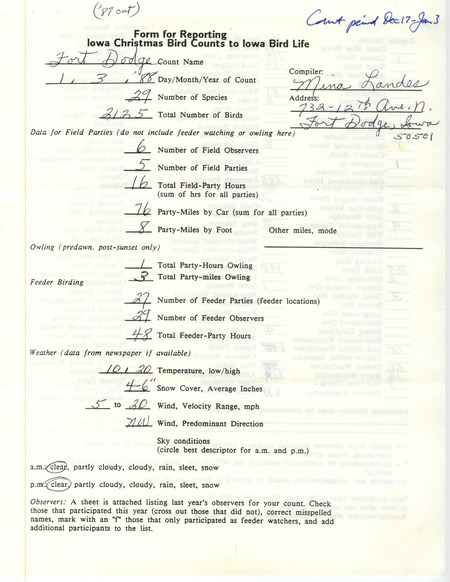 ('87 cnt)
Count period Dec 17-Jan 3
Form for Reporting
Iowa Christmas Bird Counts to Iowa Bird Life
Fort Dodge Count Name
1, 3, '88 Day/Month/Year of Count
Compiler:
Mina Landes
29 Number of Species
Address:
732-12th Ave. N.
2125 Total Number of Birds
Fort Dodge, Iowa
50501
Data for Field Parties (do not include feeder watching or owling here)
6 Number of Field Observers
5 Number of Field Parties
16 Total Field-Party Hours
(sum of hrs for all parties)
76 Party-Miles by Car (sum for all parties)
8 Party-Miles by Foot Other miles, mode
Owling (predawn, post-sunset only)
1 Total Party-Hours Owling
3 Total Party-miles Owling
Feeder Birding
27 Number of Feeder Parties (feeder locations)
29 Number of Feeder Observers
48 Total Feeder-Party Hours
Weather (data from newspaper if available)
10, 20 Temperature, low/high
4-6" Snow Cover, Average Inches
5 to 20 Wind, Velocity Range, mph
NW Wind, Predominant Direction
Sky conditions
(circle best descriptor for a.m. and p.m.)
a.m.: clear, partly cloudy, cloudy, rain, sleet, snow
p.m.: clear, partly cloudy, cloudy, rain, sleet, snow
Observers: A sheet is attached listing last year's observers for your count. Check
those that participated this year (cross out those that did not), correct misspelled
names, mark with an "f" those that only participated as feeder watchers, and add
additional participants to the list.